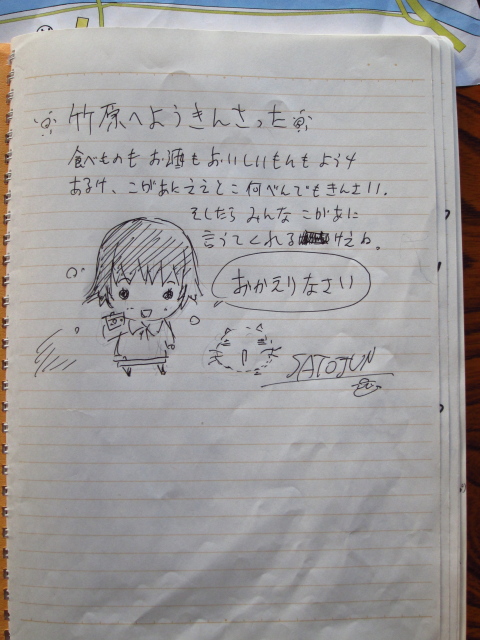 竹原へようきんさった
食べものも お酒も おいしいもんも ようけ
あるけ、こがあにええとこ何べんでもきんさい。
そしたら みんな こがあに
言うてくれる けえね。
おかえりなさい
SATOJUN